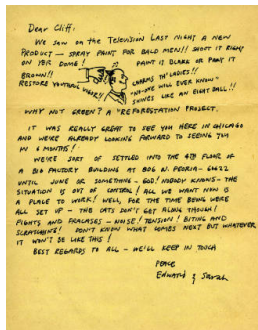 Dear Cliff:
WE SAW ON THE TELEVISION LAST NIGHT A NEW
PRODUCT — SPRAY PAINT FOR BALD MEN!! SHOOT IT RIGHT
ON YOR DOME! PAINT IS BLACK OR PORT IT
BROWN!!
RESTORE YOUTHFUL VIGOR!! CHARMS TH' LADIES!!
"NO-ONE WILL EVER KNOW"
SHINES LIKE AN EIGHT BALL!!
WHY NOT GREEN? A "REFORESTATION PROJECT.
IT WAS REALLY GREAT TO SEE YOU HERE IN CHICAGO
AND WE'RE ALREADY LOOKING FORWARD TO SEEING YOU
IN 6 MONTHS!
WE'RE SORT OF SETTLED INTO THE 4TH FLOOR OF
A BIG FACTORY BUILDING AT 806 N. PEORIA - 60622
UNTIL JUNE OR SOMETHING - GOD! NOBODY KNOWS - THE
SITUATION IS OUT OF CONTROL! ALL WE WANT NOW IS
A PLACE TO WORK! WELL, FOR THE TIME BEING WE'RE
ALL SET UP - THE CATS DON'T GET ALONG THOUGH!
FIGHTS AND FRACASES - NOISE! TENSION! BITING AND
SCRATCHING! DON'T KNOW WHAT COMES NEXT BUT WHATEVER
IT WON'T BE LIKE THIS!
BEST REGARDS TO ALL - WE'LL KEEP IN TOUCH
PEACE
EDWARD & Sarah